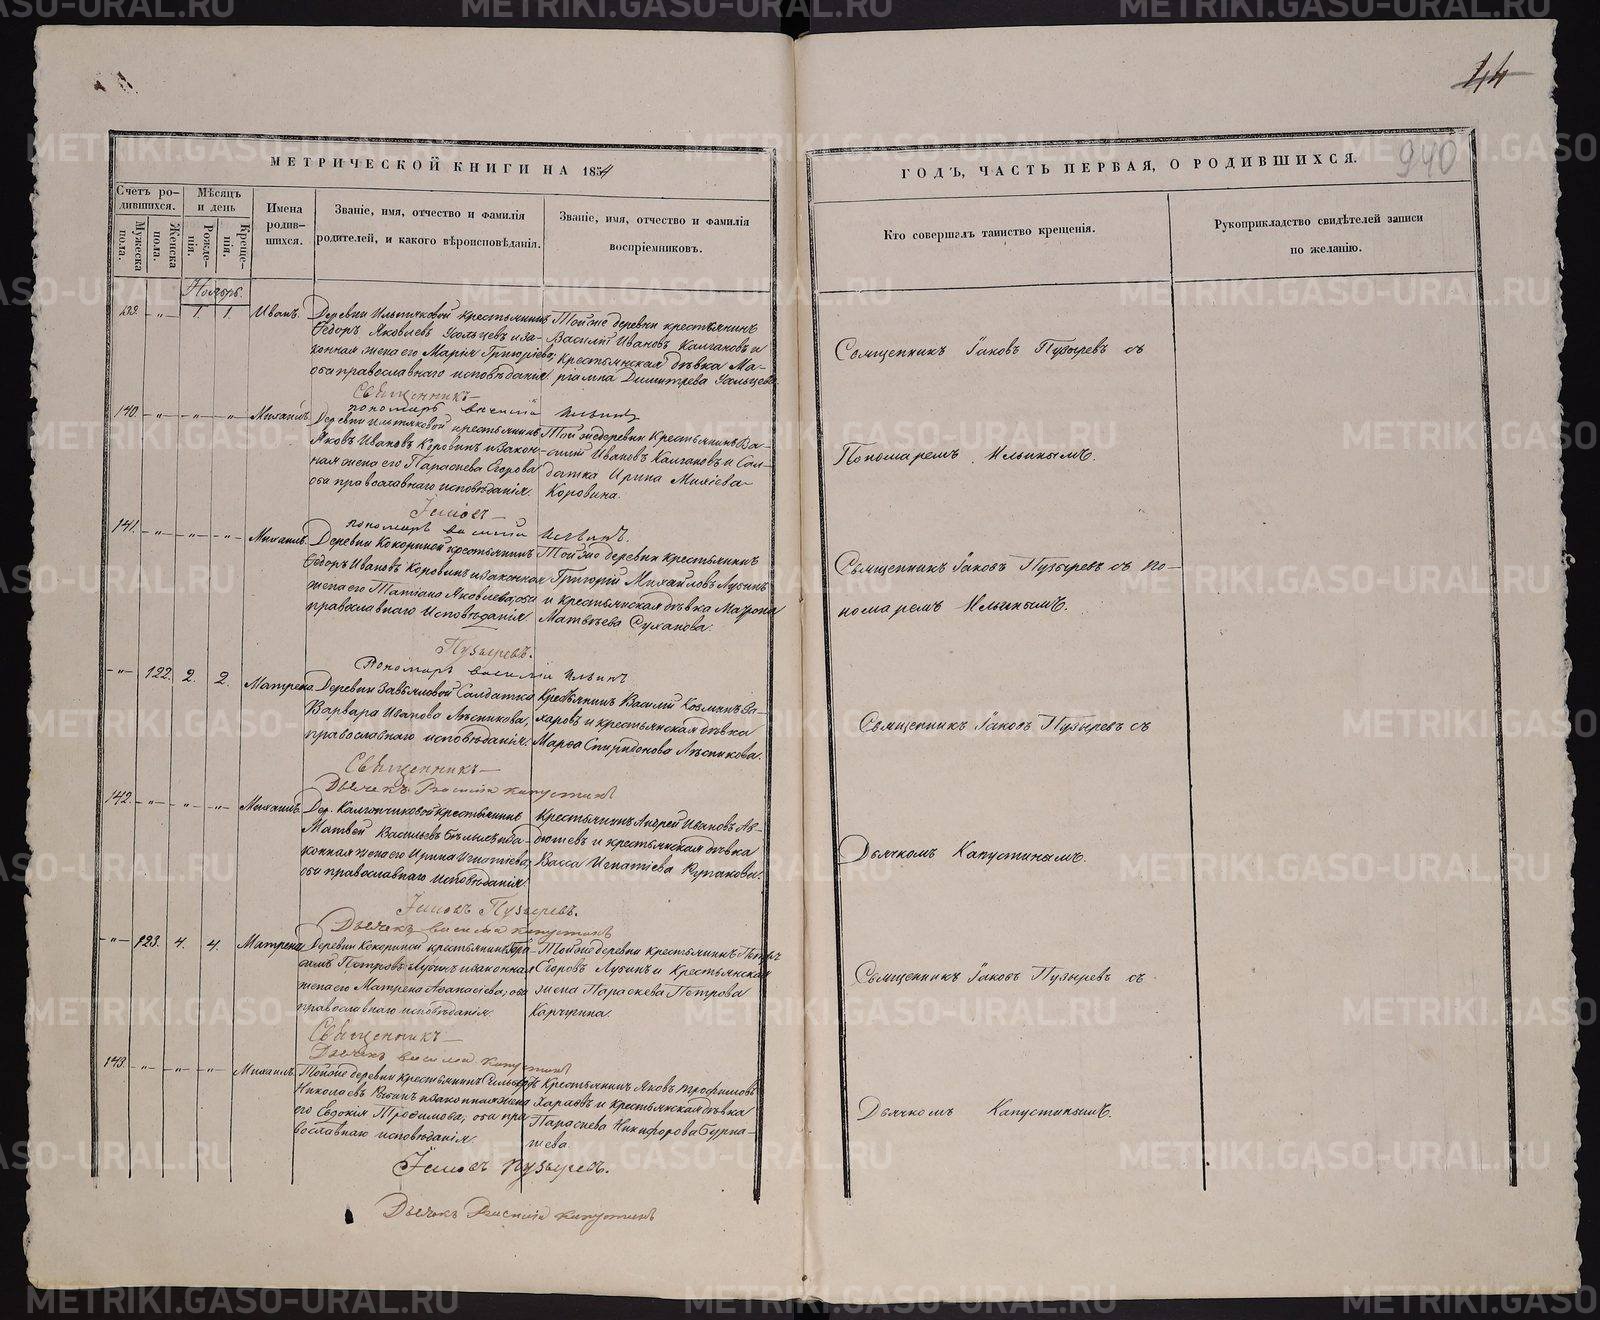 44
940
МЕТРИЧЕСКОЙ КНИГИ НА 1854
ГОДЪ, ЧАСТЬ ПЕРВАЯ, О РОДИВШИХСЯ.
Счетъ ро-
дившихся.
Мужеска
пола.
Женска
пола.
Мѣсяцъ
и день
Рожде-
нія.
Креще-
нія.
Имена
родив-
шихся.
Званіе, имя, отчество и фамилія
родителей, и какого вѣроисповѣданія.
Званіе, имя, отчество и фамилія
воспріемниковъ.
Кто совершалъ таинство крещенія.
Рукоприкладство свидѣтелей записи
по желанію.
Ноябрь.
139. -"- 1. 1. Иванъ.
Деревни крестьянинъ
Ѳедоръ Яковлевъ и за-
конная жена его Марія Григоріева,
оба православнаго исповѣданія.
Тойже деревни крестьянинъ
Василій Ивановъ Калгановъ и
Крестьянская дѣвка Ма-
ріамна Димитрева
Священникъ Іаковъ Пузыревъ съ
Священникъ
пономарь Василій Ильинъ
140. -"- -"- -"- Михаилъ.
Деревни крестьянинъ
Яковъ Ивановъ Коровинъ и закон-
ная жена его Параскева Егорова
оба православнаго исповѣданія.
Той же деревни Крестьянинъ Ва-
силій Ивановъ Калгановъ и Сол-
датка Ирина
Коровина.
Пономаремъ Ильинымъ.
Іаковъ
пономарь Василій Ильинъ.
141. -"- -"- -"- Михаилъ.
Деревни Кокориной крестьянинъ
Ѳедоръ Ивановъ Коровинъ и законная
жена его Татіана Яковлева, оба
православнаго Исповѣданія.
Той же деревни крестьянинъ
Григорій Михайловъ Лубинъ
и крестьянская дѣвка Матрона
Матвѣева Суханова.
Священникъ Іаковъ Пузыревъ съ по-
номаремъ Ильинымъ.
Пузыревъ.
Пономарь Василій Ильинъ
-"- 122. 2. 2. Матрена
Деревни Завьяловой Солдатка
Варвара Иванова Лѣсникова,
православнаго исповѣданія.
Крестьянинъ Василій Козминъ За-
харовъ и крестьянская дѣвка
Марѳа Спиридонова Лѣсникова.
Священникъ Іаковъ Пузыревъ съ
Священникъ
Дьячекъ Василій Капустинъ
142. -"- -"- -"- Михаилъ.
Дер. Крестьянинъ
Матвей Васильевъ и за-
конная жена его Ирина Игнатіева,
оба православнаго исповѣданія.
Крестьянинъ Андрей Ивановъ Ав-
дюшевъ и крестьянская дѣвка
Васса Игнатіева
Дьячкомъ Капустинымъ.
Іаковъ Пузыревъ.
Дьячекъ Василій Капустинъ
-"- 123. 4. 4. Матрена
Деревни Кокориной крестьянинъ
Петровъ Лубинъ и законная
жена его Матрена Аѳанасіева, оба
православнаго исповѣданія.
Тойже деревни крестьянинъ Петръ
Егоровъ Лубинъ и Крестьянская
жена Параскева Петрова
Карчугина.
Священникъ Іаковъ Пузыревъ съ
Священникъ
Дьячекъ Василій Капустинъ
143. -"- -"- -"- Михаилъ.
Тойже деревни Крестьянинъ
Николаевъ и законная жена
его Евдокия Трофимова, оба пра-
вославнаго исповѣданія.
Крестьянинъ Яковъ Трофимовъ
и крестьянская дѣвка
Параскева Никифорова Бурна-
шева.
Дьячкомъ Капустинымъ.
Іаковъ Пузыревъ.
Дьячекъ Василій Капустинъ
METRIKI.GASO-URAL.RU